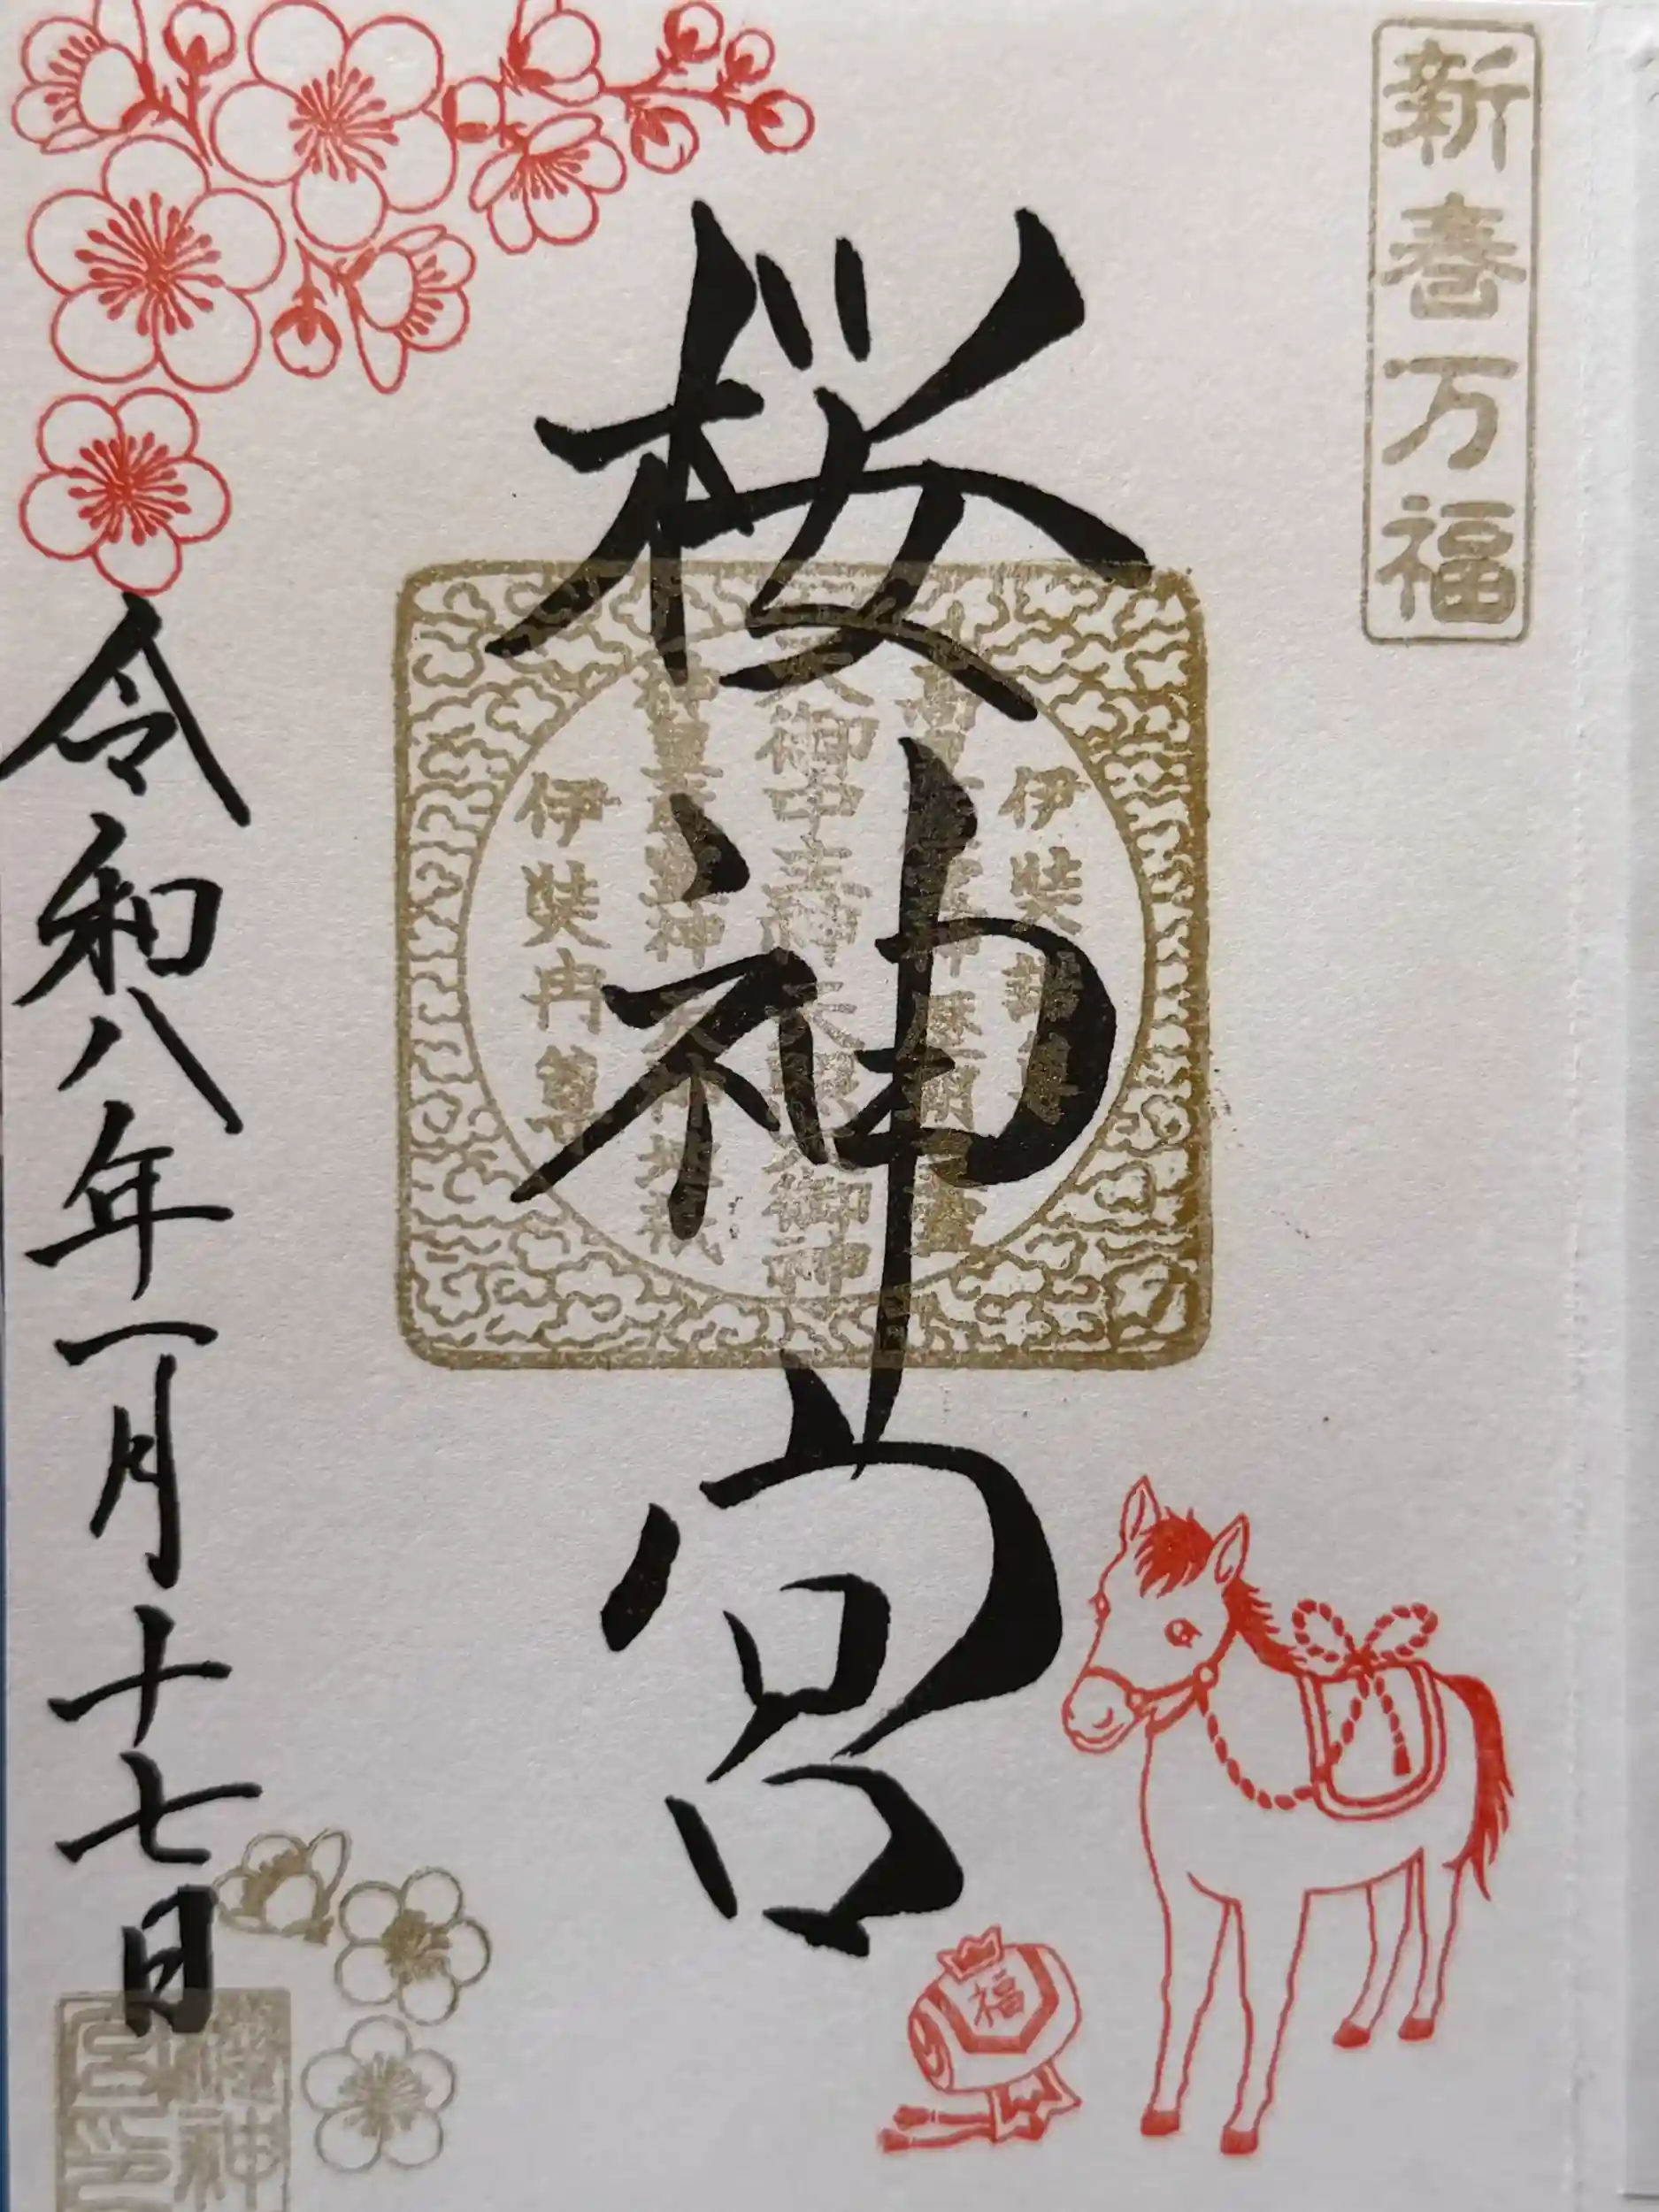 新春万福
桜神宮
伊弉諾尊
天御中主神 天照大御神
伊弉冉尊
福
令和八年一月十七日